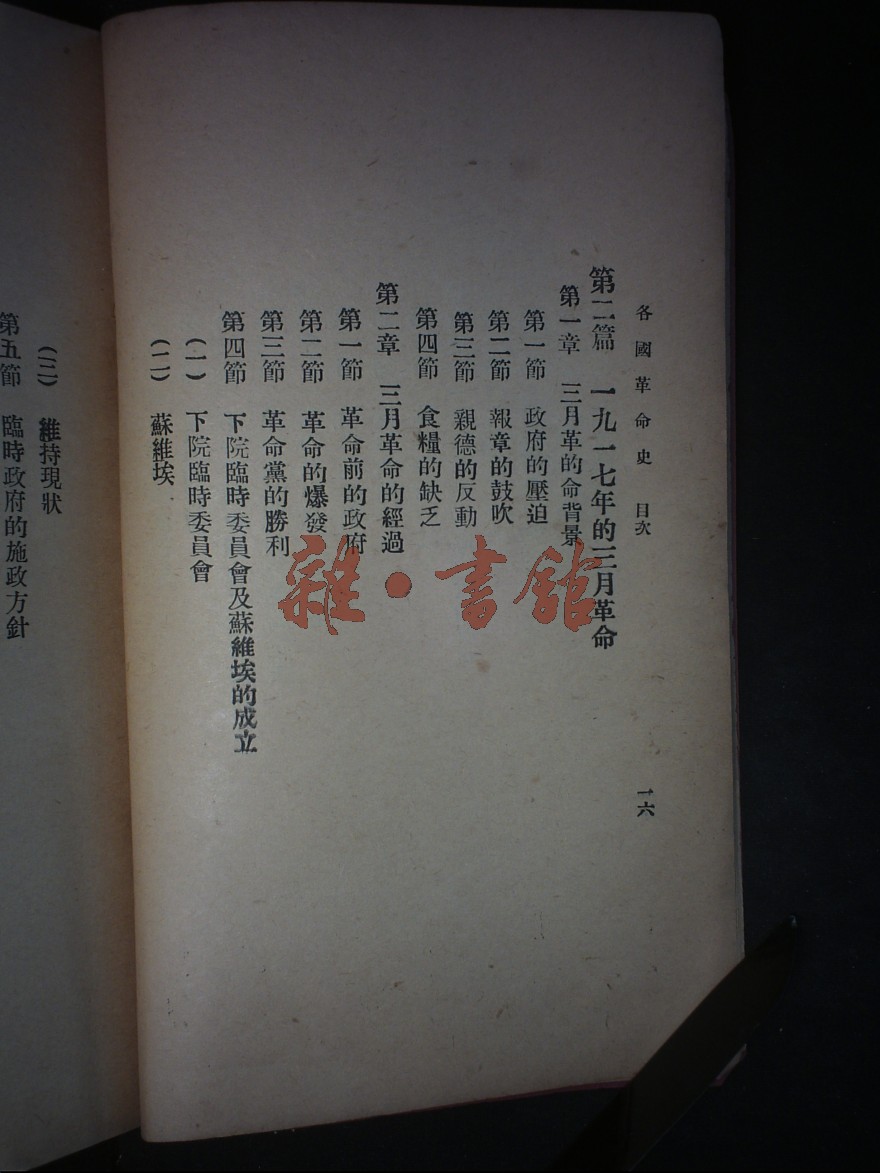 各國革命史　目次　一六
第二篇　一九一七年的三月革命
第一章　三月革的命背景
第一節　政府的壓迫
第二節　報章的鼓吹
第三節　親德的反動
第四節　食糧的缺乏
第二章　三月革命的經過
第一節　革命前的政府
第二節　革命的爆發
第三節　革命黨的勝利
第四節　下院臨時委員會及蘇維埃的成立
（一）　下院臨時委員會
（二）　蘇維埃
（三）　維持現狀
第五節　臨時政府的施政方針
雜·書館